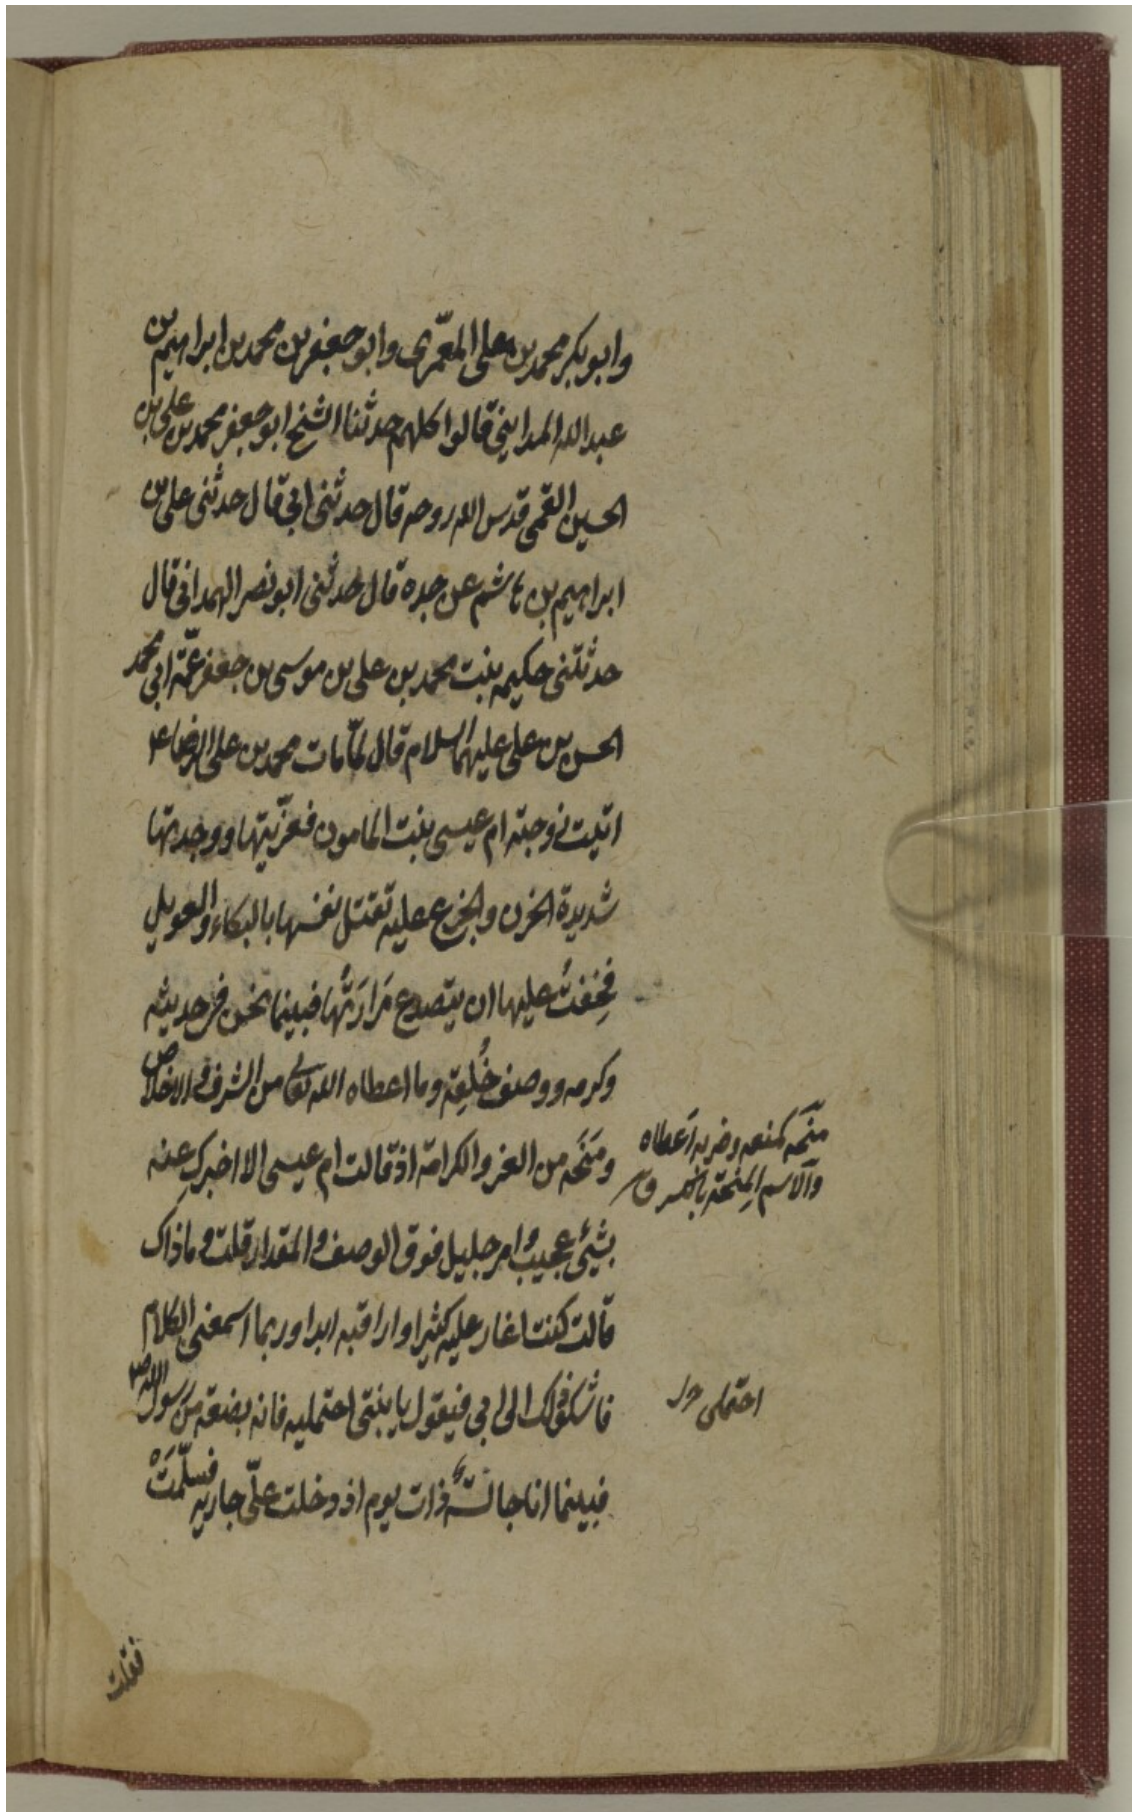 وابوبكر محمد بن على المعمّرى وابو جعفر بن محمد بن ابراهيم بن
عبد الله المداينى قالوا كلهم حدثنا الشيخ ابو جعفر محمد بن على بن
الحسين القمى قدس الله روحه قال حدثنى ابى قال حدثنى على بن
ابراهيم بن هاشم عن جده قال حدثنى ابو نصر الهمدانى قال
حدثتنى حكيمه بنت محمد بن على بن موسى بن جعفر عمّة ابى محمد
الحسن بن على عليهما السلام قال لمّا مات محمد بن على الرضا ع
اتيت زوجته ام عيسى بنت المامون فعزّيتها ووجدتها
شديدة الحزن والجزع عليه تقتل نفسها بالبكاء والعويل
فخِفتُ عليها ان يتصدع مَرارَتُها فبينما نحن فى حديثه
وكرمه ووصف خُلقِه وما اعطاه الله تعالى من الشرف والاخلاص
ومَنَحَه من العز والكرامة اذ قالت ام عيسى الا اخبرك عنه
بشئ عجيب وامر جليل فوق الوصف والمقدار قلت وما ذاك
قالت كنت اغار عليه كثيرا واراقبه ابدا وربما اسمعنى الكلام
فاشكو ذلك الى ابى فيقول يا بنتى احتمليه فانه بضعة من رسول الله ص
فبينما انا جالسة ذات يوم اذ دخلت علىّ جاريه فسلّمَتْ
منَحَه كمنعه وضربه اَعطاه
والاسم المِنحة بالكسر ق
احتملى
فقلت